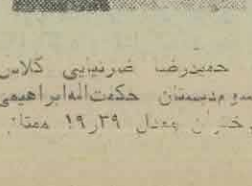 حمیدرضا غبرنیایی کلاس
سوم دبستان حکمت‌اله‌ابراهیمی
معدل ۱۹٫۲۹ ممتاز